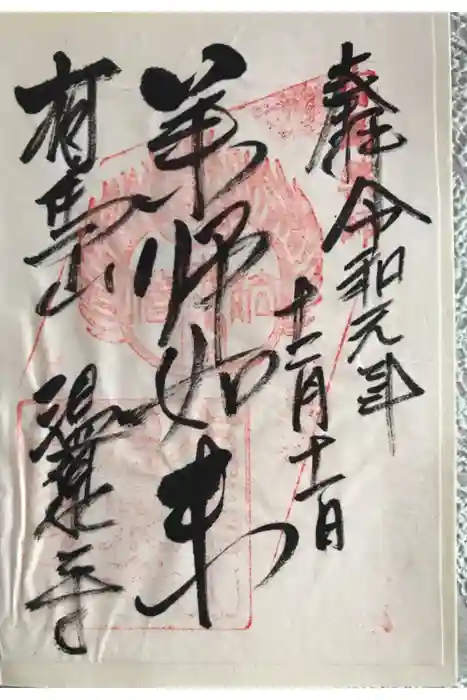 奉拝 令和元年
十二月十一日
薬師如来
有馬山 温泉寺